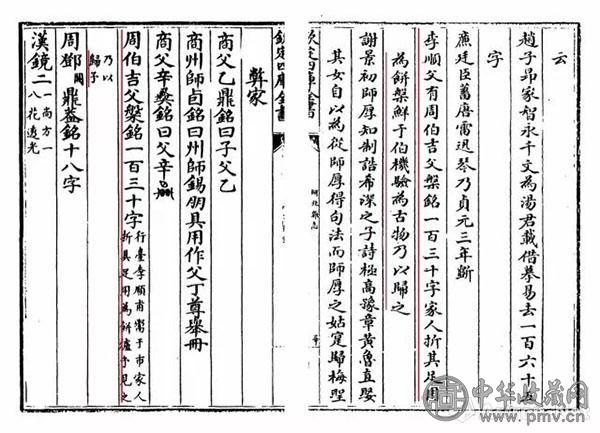 云
趙子昂家智永千文為湯君載借摹易去一百六十五
字
庶廷臣蓄唐雷迅琴乃貞元三年斲
李順父有周伯吉父槃銘一百三十字家人折其足用
為餅槃鮮于伯機驗為古物乃以歸之
謝景初師厚知制誥希深之子詩極高豫章黃魯直娶
其女自以為從師厚得句法而師厚之姑寔歸梅聖
硯北雜志
欽定四庫全書
商父乙鼎銘曰子父乙
商州師卣銘曰州師錫朋具用作父丁尊舉冊
商父辛彝銘曰父辛
周伯吉父槃銘一百三十字行臺李順甫鬻于市家人
折其足用為餅爐予見之
乃以
歸予
周鄧闕鼎蓋銘十八字
漢鏡二一尚方一
八花透光
中华收藏网
www.pmv.cn